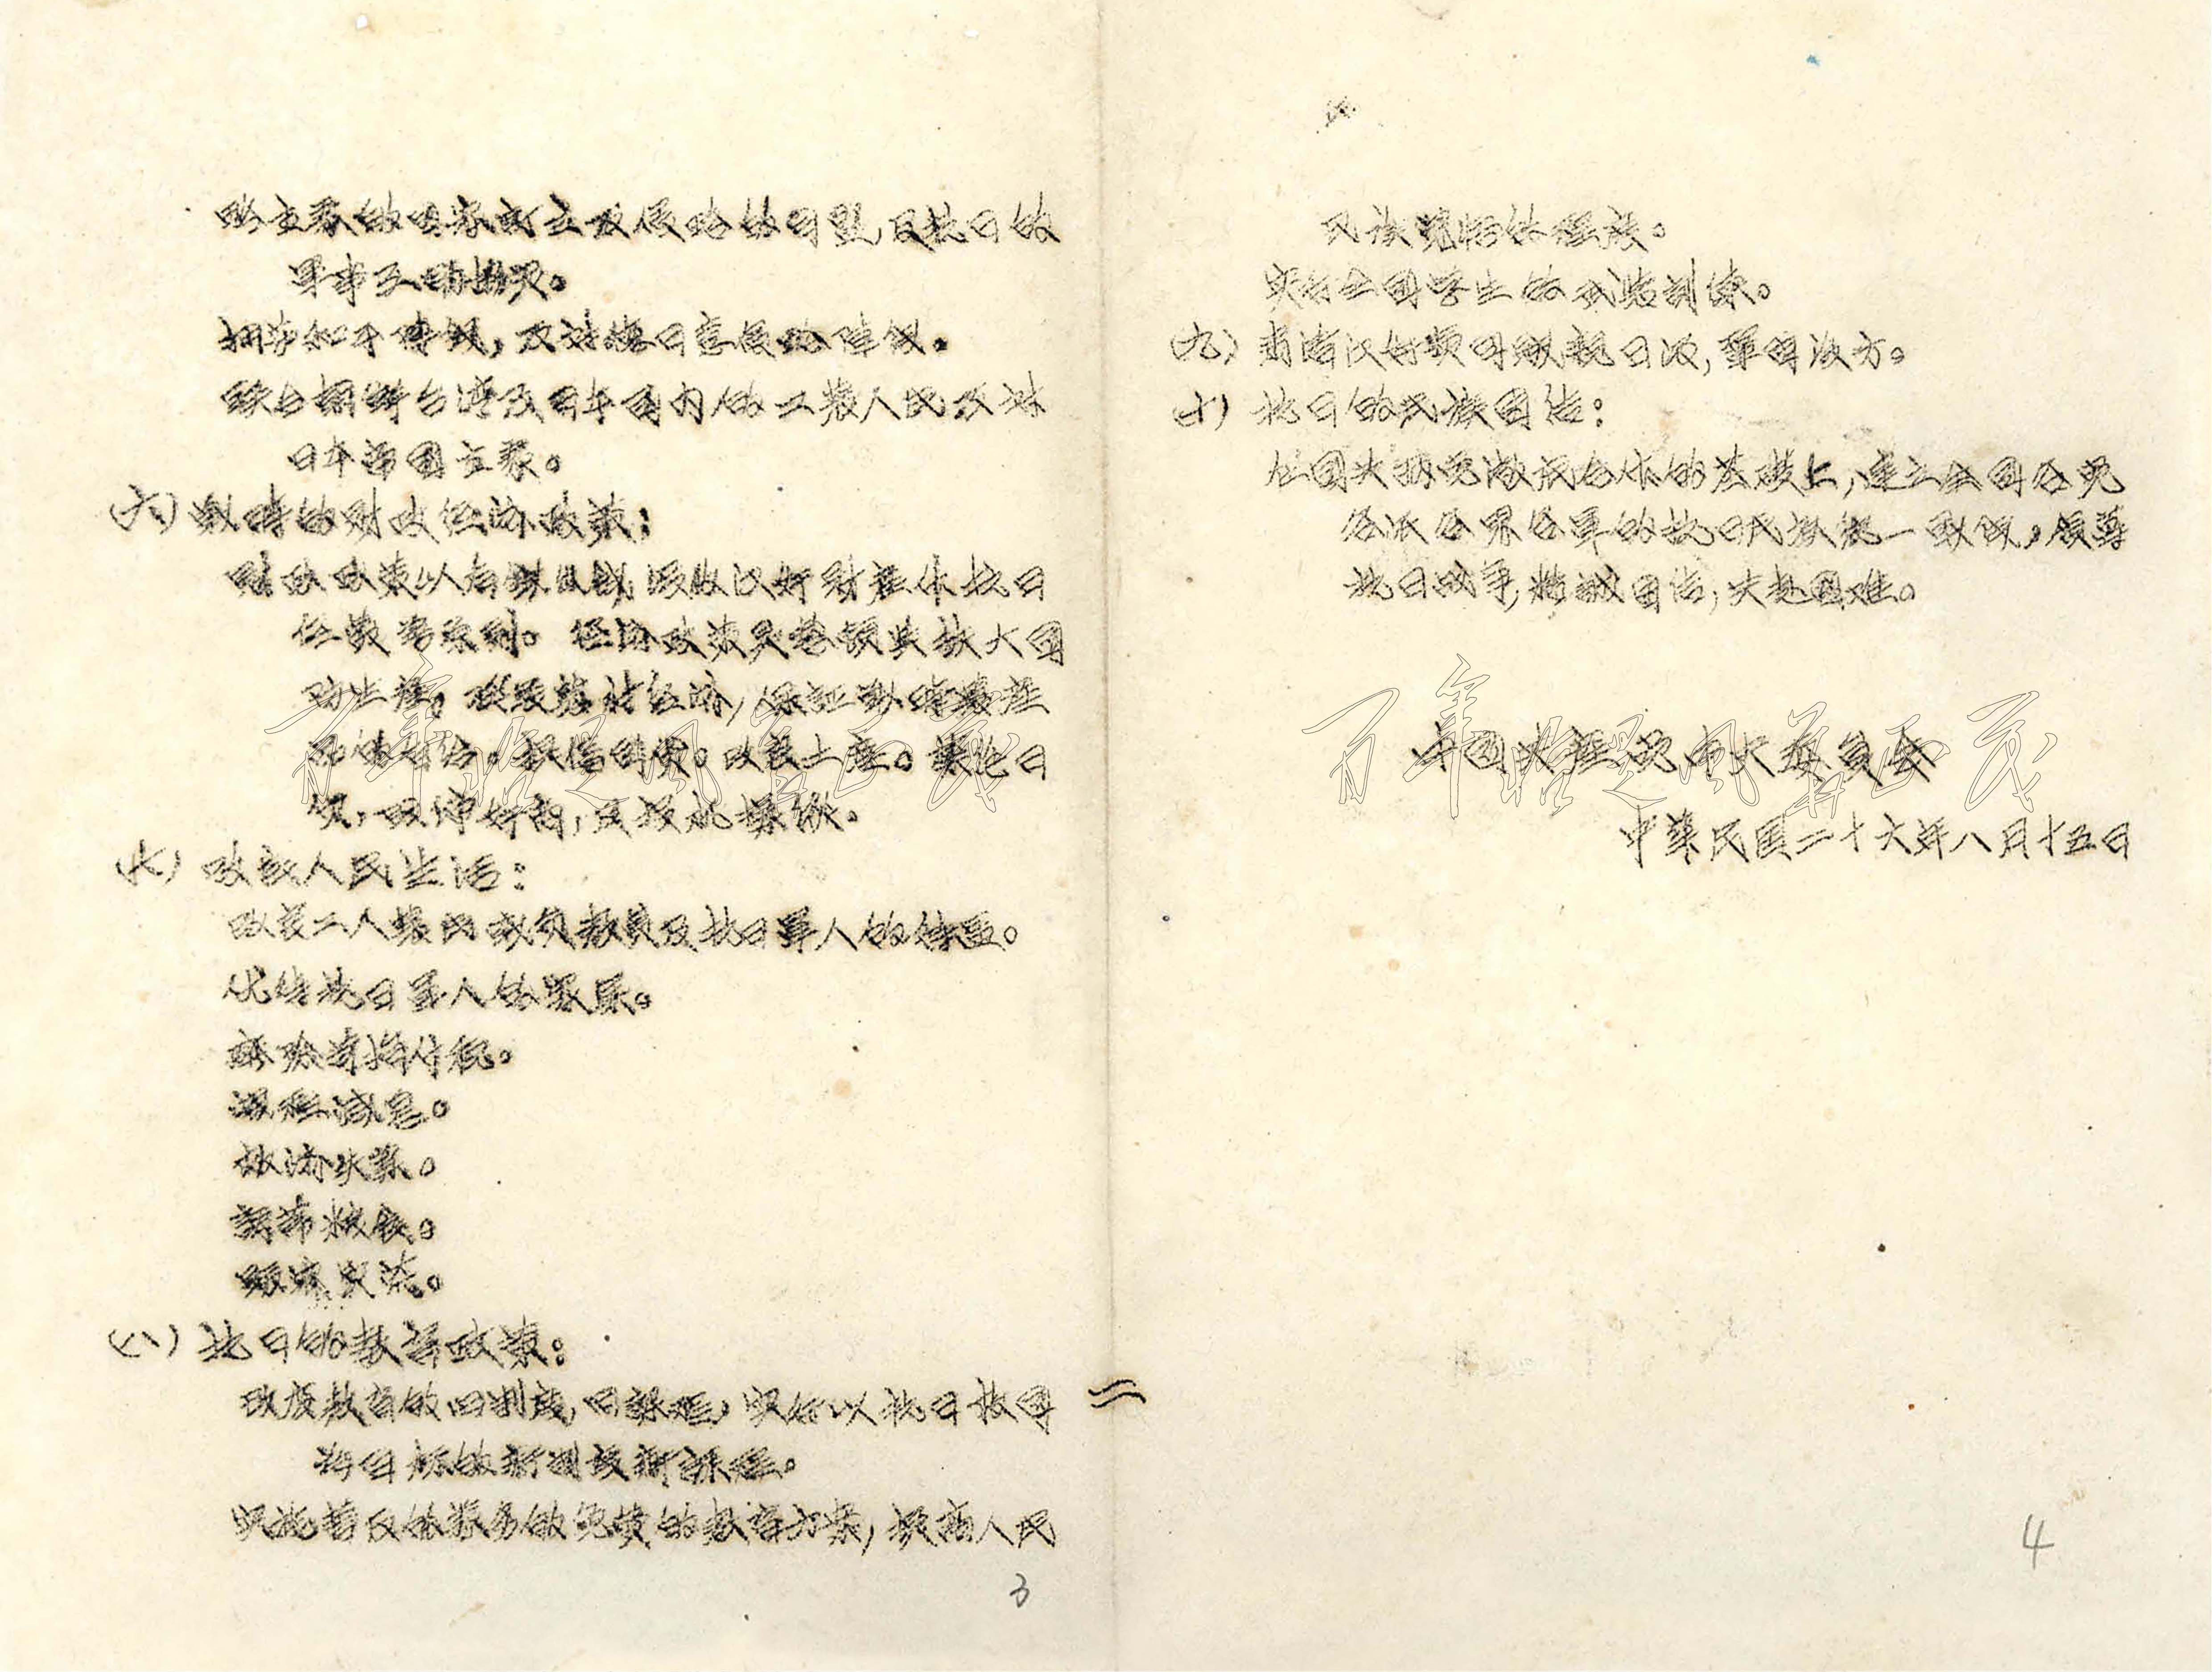 略主义的国家订立反侵略的同盟,及抗日的
军事互助协定。
拥护和平阵线,反对德日意侵略阵线。
联合朝鲜台湾及日本国内的工农人民反对
日本帝国主义。
(六)战时的财政经济政策:
财政政策以有钱出钱,没收汉奸财产作抗日
经费为原则。经济政策是整顿与扩大国
防生产,发展农村经济,保证战时农产
品的自给。提倡国货。改良土产。禁绝日
货,取缔奸商,反投机操纵。
(七)改良人民生活:
改良工人农民职员教员及抗日军人的待遇。
优待抗日军人的家属。
废除苛捐什税。
减租减息。
救济失业。
调节粮食。
赈济灾荒。
(八)抗日的教育政策:
改变教育的旧制度,旧课程,实行以抗日救国
为目标的新制度新课程。
实施普及的义务的免费的教育方案,提高人民
3
民族觉悟的程度。
实行全国学生的武装训练。
(九)肃清汉奸卖国贼亲日派,巩固后方。
(十)抗日的民族团结:
在国共两党澈底合作的基础上,建立全国各党
各派各界各军的抗日民族统一战线,领导
抗日战争,精诚团结,共赴国难。
中国共产党中央委员会
中华民国二十六年八月十五日
4
百年恰是风华正茂
百年恰是风华正茂